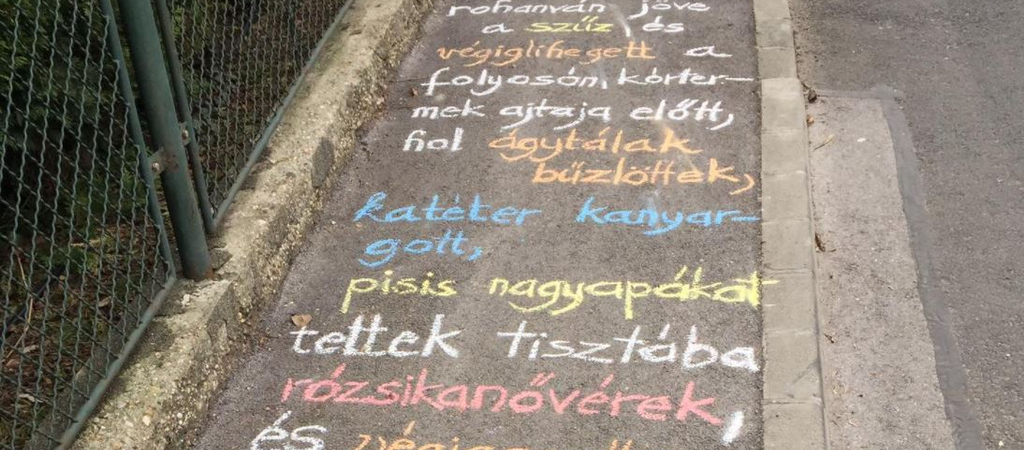 rohanván jöve
a szűz és
végiglihegett a
folyosón, kórter-
mek ajtaja előtt,
hol ágytálak
bűzlöttek,
katéter kanyar-
gott,
pisis nagyapákat
tettek tisztába
rózsikanővérek,
és